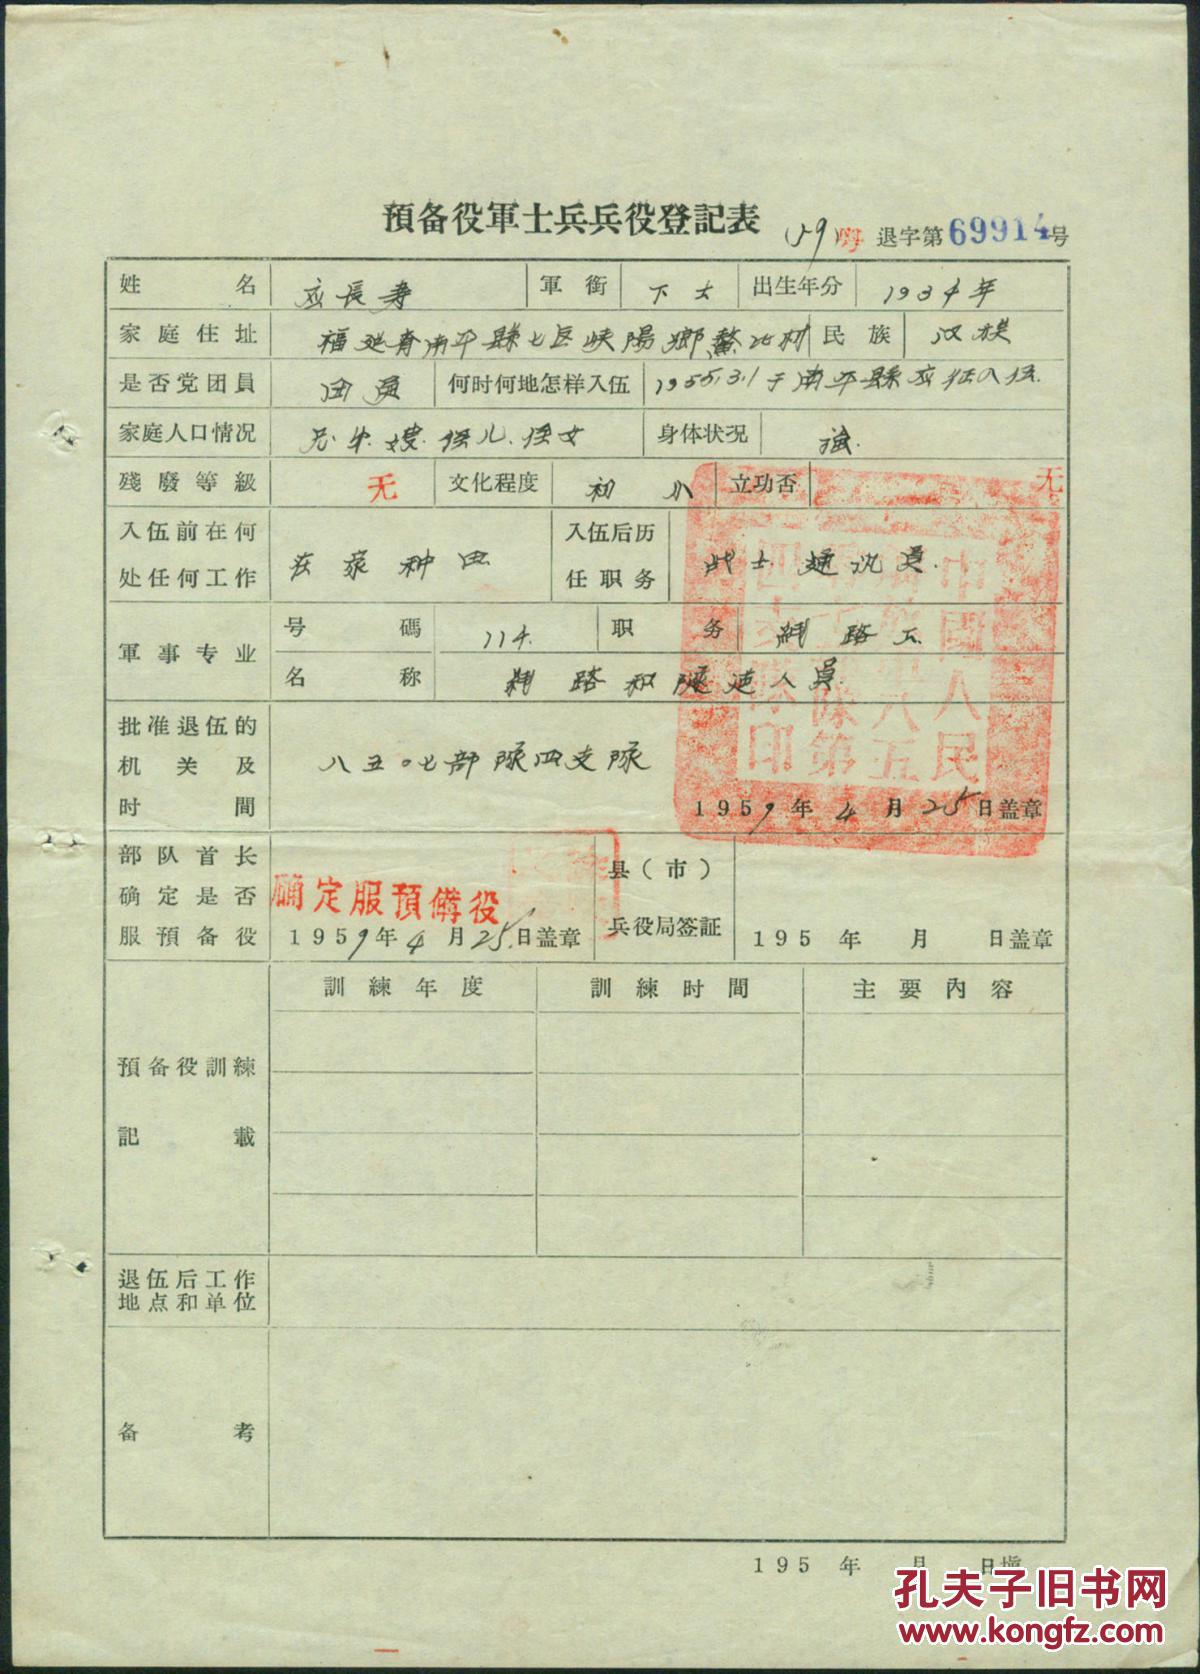 預备役軍士兵兵役登記表
(59) 退字第69914号
姓名 应長寿 軍銜 下士 出生年分 1934年
家庭住址 福建省南平縣七区峡陽鄉 民族 汉族
是否党团員 团員 何时何地怎样入伍 1955.3.1于南平縣应征入伍.
家庭人口情况 兄 嫂. 侄儿. 侄女 身体状况 强.
殘廢等級 无 文化程度 初小 立功否 无
入伍前在何处任何工作 在家种田 入伍后历任职务 战士. 通讯員.
軍事专业 号碼 114. 职务 綫路工
名称 綫路和 人員.
批准退伍的机关及时間 八五〇七部隊四支隊
1959年4月25日盖章
中國人民 四支隊印
部队首长确定是否服預备役 确定服預備役
1959年4月25日盖章
县(市)兵役局签証 195 年 月 日盖章
預备役訓練記載 訓練年度 訓練时間 主要內容
退伍后工作地点和单位
备考
195 年 月 日填
孔夫子旧书网
www.kongfz.com